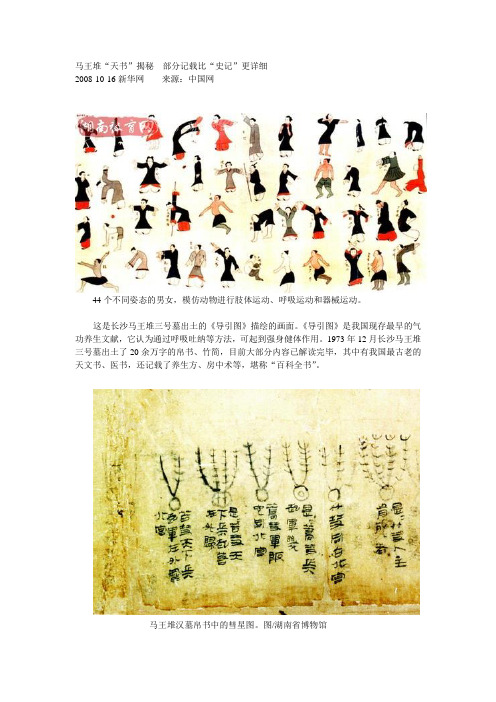 马王堆“天书”揭秘 部分记载比“史记”更详细
2008-10-16 新华网 来源：中国网
湖南教育网
44 个不同姿态的男女，模仿动物进行肢体运动、呼吸运动和器械运动。
这是长沙马王堆三号墓出土的《导引图》描绘的画面。《导引图》是我国现存最早的气
功养生文献，它认为通过呼吸吐纳等方法，可起到强身健体作用。1973 年 12 月长沙马王堆
三号墓出土了 20 余万字的帛书、竹简，目前大部分内容已解读完毕，其中有我国最古老的
天文书、医书，还记载了养生方、房中术等，堪称“百科全书”。
马王堆汉墓帛书中的彗星图。图/湖南省博物馆